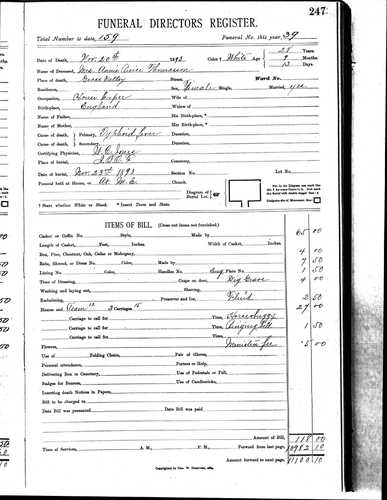 247
FUNERAL DIRECTORS REGISTER.
Total Number to date, 159 Funeral No. this year, 39
Date of Death, Nov. 20th 1893 Color † White Age 28 Years.
Name of Deceased, Mrs. Annie Thomason 9 Months.
Place of death, Grass Valley Street, 13 Days.
Residence, Ward No.
Occupation, House keeper Sex, Female Single, Married, yes
Birthplace, England Wife of
Widow of
Name of Father, His Birth-place, *
Name of Mother, Her Birth-place, *
Cause of death, Primary, Typhoid fever Duration,
Cause of death, Secondary, Duration,
Certifying Physician, Jones
Place of burial, I.O.O.F. Cemetery,
Date of burial, Nov. 23rd 1893 Section No. Lot No.
Funeral held at House, or M.E. Church.
Diagram of Burial Lot.
Put in the Diagram one mark like this for each grave in the lot. And mark this Burial with double dagger thus—‡
Designate site of Monument thus
† State whether White or Black. * Insert Town and State.
ITEMS OF BILL. (Cross out items not furnished.)
Casket or Coffin No. Style, Made by 65 00
Length of Casket, Feet, Inches.
Box, Pine, Chestnut, Oak, Cedar or Mahogany, 4 00
Robe, Shroud, or Dress No. Made by 7 50
Lining No. Color, Handles No. Plate No. 1 50
Time of Dressing, Crape on door, Dig Grave 4 00
Washing and laying out, Shaving,
Embalming, Preserver and Ice, Fluid 2 50
Hearse and Team 12 3 Carriages 15 27 00
Carriage to call for Time, Horse buggy
Carriage to call for Time, Ringing Bell 1 50
Carriage to call for Time,
Flowers, Minister fee 5 00
Use of Folding Chairs, Pair of Gloves,
Personal attendance, Porters or Help,
Delivering Box to Cemetery, Use of Pedestals or Pall,
Badges for Bearers, Use of Candlesticks,
Inserting death Notices in Papers,
Bill to be charged to
Date Bill was presented Date Bill was paid
Amount of Bill, 118 00
Time of Services, A. M., P. M., Forward from last page, 10982 10
Amount forward to next page, 11100 10